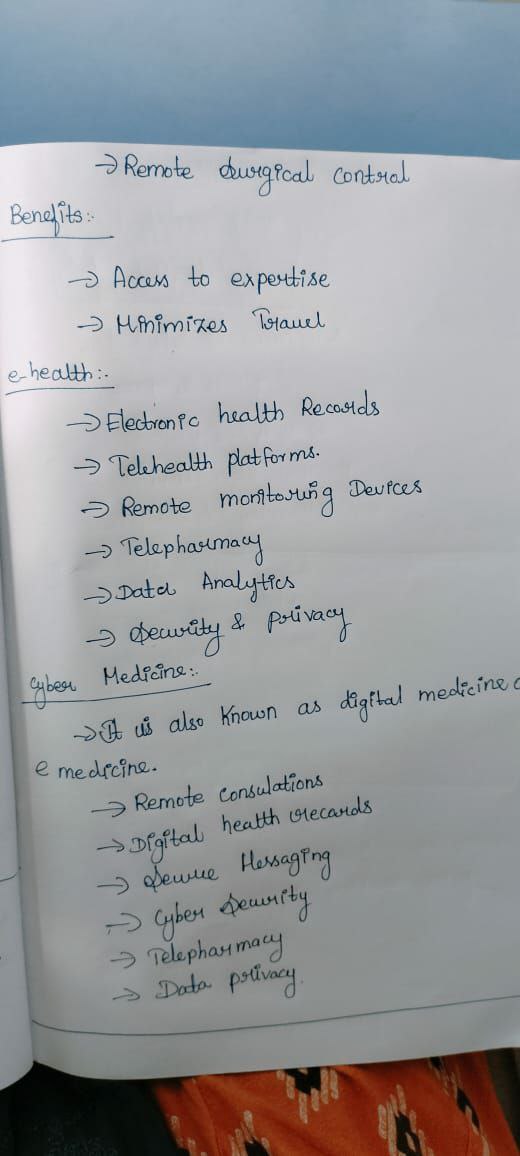 → Remote surgical control
Benefits:-
→ Access to expertise
→ Minimizes Travel
e-health:-
→ Electronic health Records
→ Telehealth platforms.
→ Remote monitoring Devices
→ Telepharmacy
→ Data Analytics
→ Security & privacy
Cyber Medicine:-
→ It is also known as digital medicine
e medicine.
→ Remote Consulations
→ Digital health records
→ Secure Messaging
→ Cyber Security
→ Telepharmacy
→ Data privacy.